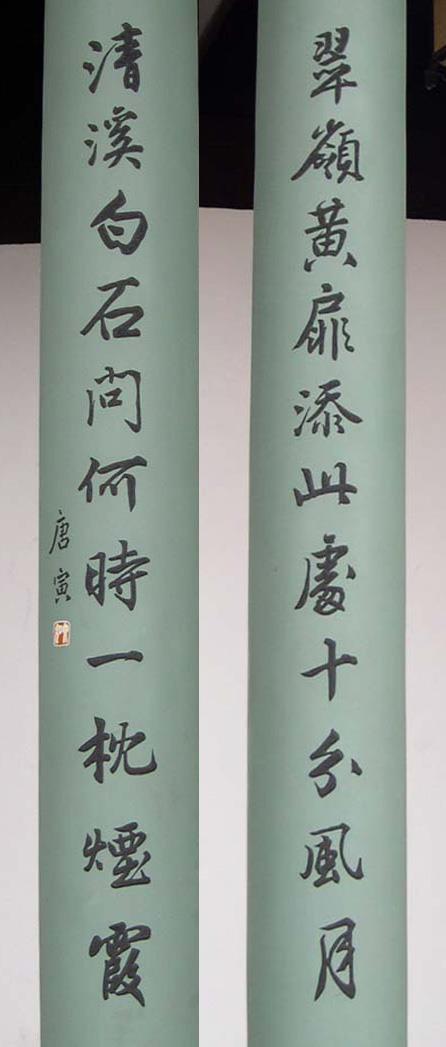 翠嶺黄扉添此處十分風月
清溪白石問何時一枕煙霞
唐寅